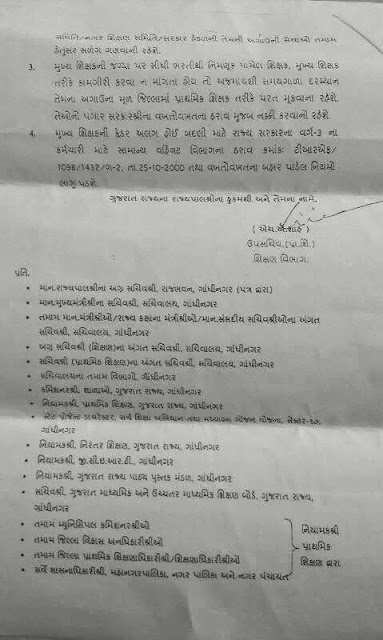 સમિતિ/નગર શિક્ષણ સમિતિ/સરકાર હેઠળની તેમની અગાઉની સેવાઓ તમામ
હેતુસર સળંગ ગણવાની રહેશે.
3. મુખ્ય શિક્ષકની જગ્યા પર સીધી ભરતીથી નિમણૂક પામેલ શિક્ષક, મુખ્ય શિક્ષક
તરીકે કામગીરી કરવા ન માંગતા હોય તો અજમાયશી સમયગાળા દરમ્યાન
તેમના અગાઉના મૂળ જિલ્લામાં પ્રાથમિક શિક્ષક તરીકે પરત મૂકવાના રહેશે.
તેઓનો પગાર સરકારશ્રીના વખતોવખતના ઠરાવ મુજબ નક્કી કરવાનો રહેશે.
4. મુખ્ય શિક્ષકની કેડર અલગ હોઈ બદલી માટે રાજ્ય સરકારના વર્ગ-3 ના
કર્મચારી માટે સામાન્ય વહિવટ વિભાગના ઠરાવ ક્રમાંક: ટીઆરએફ/
1098/1432/ગ-2, તા.25-10-2000 તથા વખતોવખતના બહાર પાડેલ નિયમો
લાગુ પડશે.
ગુજરાત રાજ્યના રાજ્યપાલશ્રીના હુકમથી અને તેમના નામે,
( એચ.એ.શાહ )
ઉપસચિવ,(પ્રા.શિ.)
શિક્ષણ વિભાગ.
પ્રતિ,
• માન.રાજ્યપાલશ્રીના અગ્ર સચિવશ્રી, રાજભવન, ગાંધીનગર (પત્ર દ્વારા)
• માન.મુખ્યમંત્રીશ્રીના સચિવશ્રી, સચિવાલય, ગાંધીનગર
• તમામ માન.મંત્રીશ્રીઓ/રાજ્ય કક્ષાના મંત્રીશ્રીઓ/માન.સંસદીય સચિવશ્રીઓના અંગત
સચિવશ્રી, સચિવાલય, ગાંધીનગર
• અગ્ર સચિવશ્રી (શિક્ષણ)ના અંગત સચિવશ્રી, સચિવાલય, ગાંધીનગર
• સચિવશ્રી (પ્રાથમિક શિક્ષણ)ના અંગત સચિવશ્રી, સચિવાલય, ગાંધીનગર
• સચિવાલયના તમામ વિભાગો, ગાંધીનગર
• કમિશનરશ્રી, શાળાઓ, ગુજરાત રાજ્ય, ગાંધીનગર
• નિયામકશ્રી, પ્રાથમિક શિક્ષણ, ગુજરાત રાજ્ય, ગાંધીનગર
• સ્ટેટ પ્રોજેક્ટ ડાયરેક્ટર, સર્વ શિક્ષા અભિયાન તથા મધ્યાહન ભોજન યોજના, સેક્ટર-17,
ગાંધીનગર
• નિયામકશ્રી, નિરંતર શિક્ષણ, ગુજરાત રાજ્ય, ગાંધીનગર
• નિયામકશ્રી, જી.સી.ઇ.આર.ટી., ગાંધીનગર
• નિયામકશ્રી, ગુજરાત રાજ્ય પાઠ્ય પુસ્તક મંડળ, ગાંધીનગર
• સચિવશ્રી, ગુજરાત માધ્યમિક અને ઉચ્ચતર માધ્યમિક શિક્ષણ બોર્ડ, ગુજરાત રાજ્ય,
ગાંધીનગર
• તમામ મ્યુનિસિપલ કમિશનરશ્રીઓ
• તમામ જિલ્લા વિકાસ અધિકારીશ્રીઓ
• તમામ જિલ્લા પ્રાથમિક શિક્ષણાધિકારીશ્રી/શિક્ષણાધિકારીશ્રીઓ
• સર્વે શાસનાધિકારીશ્રી, મહાનગરપાલિકા, નગર પાલિકા અને નગર પંચાયત
નિયામકશ્રી
પ્રાથમિક
શિક્ષણ દ્વારા